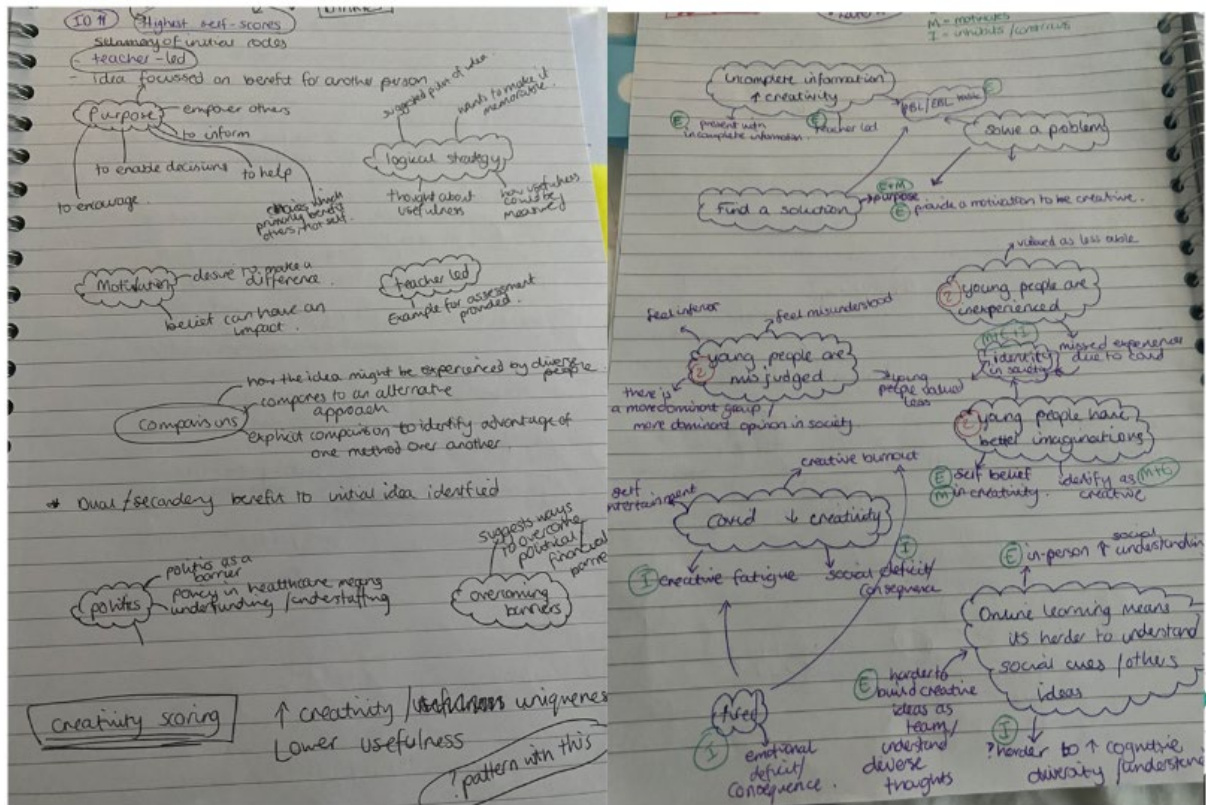 IO #
Highest self-scores
Summary of initial codes
- teacher-led
- idea focussed on benefit for another person
Purpose
empower others
to inform
to enable decisions
to help
to encourage.
choices which
primarily benefit
others, not self.
suggested plan of idea
wants to make it
memorable.
logical strategy
thought about
usefulness
how usefulness
could be
measured
Motivation
desire to make a
difference.
belief can have an
impact.
teacher led
Example for assessment
provided.
how the idea might be experienced by diverse
people.
compares to an alternative
approach
Comparisons
explicit comparison to identify advantage of
one method over another.
* Dual/secondary benefit to initial idea identified
politics as a
barrier
policy in healthcare means
underfunding/understaffing
politics
suggests ways
to overcome
political/
financial
barriers
overcoming
barriers
creativity scoring
↑ creativity/ uniqueness
Lower usefulness
? pattern with this
M = motivates
I = inhibits/constrains
Incomplete information
↑ creativity
PBL/EBL
E
E present with
incomplete information.
E teacher led
solve a problem
Find a solution
E+M
purpose
E provide a motivation to be creative.
viewed as less able
2 young people are
inexperienced
missed experience
due to covid
feel inferior
feel misunderstood
2 young people are
misjudged
there is
a more dominant group/
more dominant opinion in society
young
people valued
less
identity
in society
2 young people have
better imaginations
E self belief
M in creativity.
identify as M+E
creative
creative burnout
self
entertainment
Covid ↓ creativity
I creative fatigue
I
social deficit/
consequence
E in-person ↑ social
understanding
Online learning means
its harder to understand
social cues/others
ideas
E harder to
build creative
ideas as
team/
understand
diverse
thoughts
tired
I
emotional
deficit/
consequence.
I
? harder to ↑ cognitive
diversity/understand